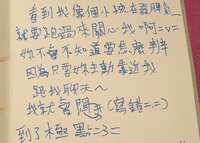 看到我像個小孩在發脾氣
就要趕過來關心我啊=v=
妳不會不知道要怎麼辦
因為只要妳主動靠近我
跟我聊天~
我就會開心(寫錯=_=)
到了極點=3=